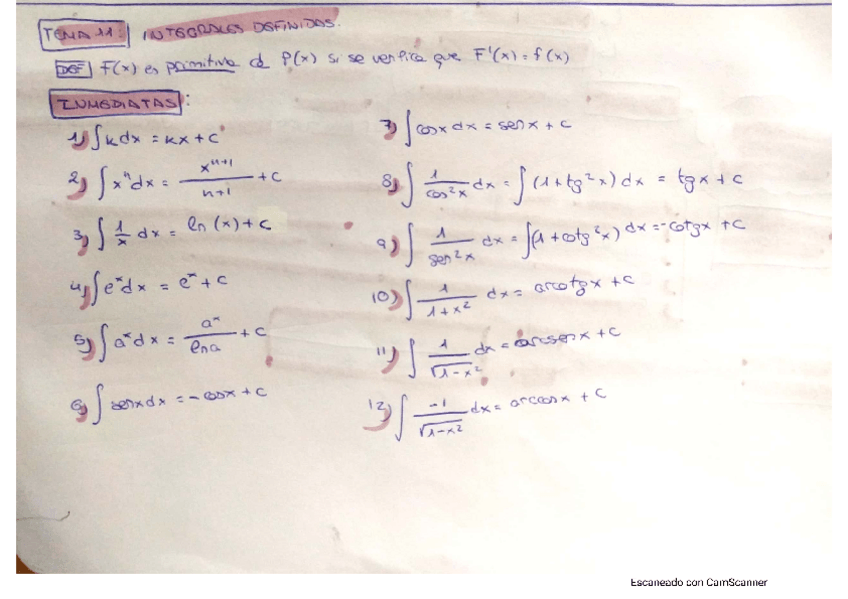 TEMA 11: INTEGRALES DEFINIDAS.
DEF F(x) es primitiva de f(x) si se verifica que F'(x) = f(x)
INMEDIATAS:
1) ∫ k dx = kx + C
2) ∫ xⁿ dx = xⁿ⁺¹/n+1 + C
3) ∫ 1/x dx = ln (x) + C
4) ∫ eˣ dx = eˣ + C
5) ∫ aˣ dx = aˣ/ln a + C
6) ∫ senx dx = -cosx + C
7) ∫ cosx dx = senx + C
8) ∫ 1/cos²x dx = ∫ (1 + tg²x) dx = tgx + C
9) ∫ 1/sen²x dx = ∫ (1 + cotg²x) dx = -cotgx + C
10) ∫ 1/1+x² dx = arcotgx + C
11) ∫ 1/√1-x² dx = arcsenx + C
12) ∫ -1/√1-x² dx = arccosx + C
Escaneado con CamScanner